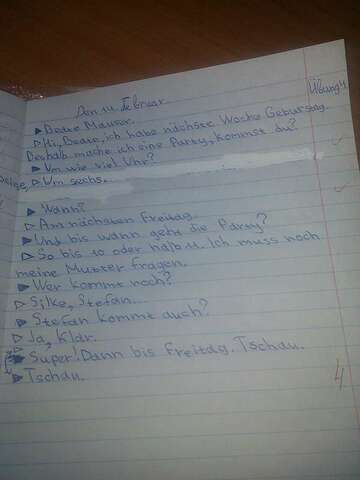 Den 14. Februar
Übung 4
▶ Beate Mauser.
▷ Hi, Beate, ich habe nächste Woche Geburtstag.
Deshalb mache ich eine Party, kommst du?
▶ Um wie viel Uhr?
▷ Um sechs.
▶ Wann?
▷ Am nächsten Freitag.
▶ Und bis wann geht die Party?
▷ So bis 10 oder halb 11. Ich muss noch
meine Mutter fragen.
▶ Wer kommt noch?
▷ Silke, Stefan...
▶ Stefan kommt auch?
▷ Ja, klar.
▶ Super! Dann bis Freitag. Tschau.
▶ Tschau.
4